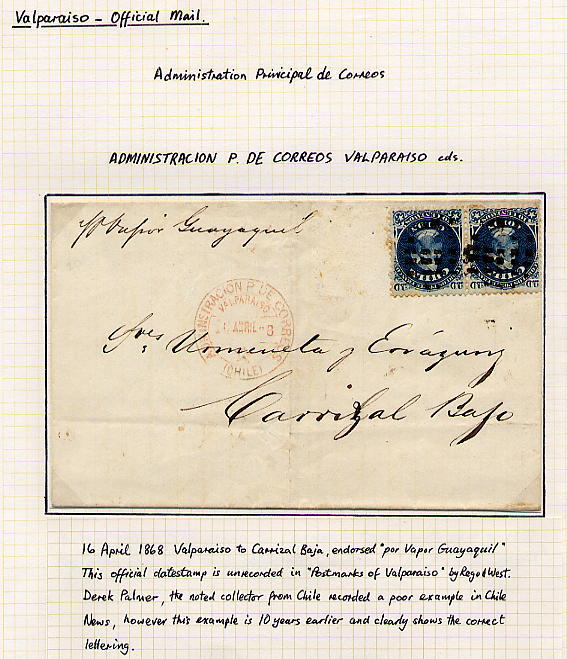 Valparaiso – Official Mail.
Administration Principal de Correos
ADMINISTRACION P. DE CORREOS VALPARAISO cds.
p/ Vapor Guayaquil
ADMINISTRACION P. DE CORREOS
VALPARAISO
ABRIL
(CHILE)
Sres Urmeneta y Errázuriz
Carrizal Bajo
COLON
CHILE
COLON
CHILE
16 April 1868 Valparaiso to Carrizal Baja, endorsed "por Vapor Guayaquil"
This official datestamp is unrecorded in "Postmarks of Valparaiso" by Reg & West.
Derek Palmer, the noted collector from Chile recorded a poor example in Chile
News, however this example is 10 years earlier and clearly shows the correct
lettering.